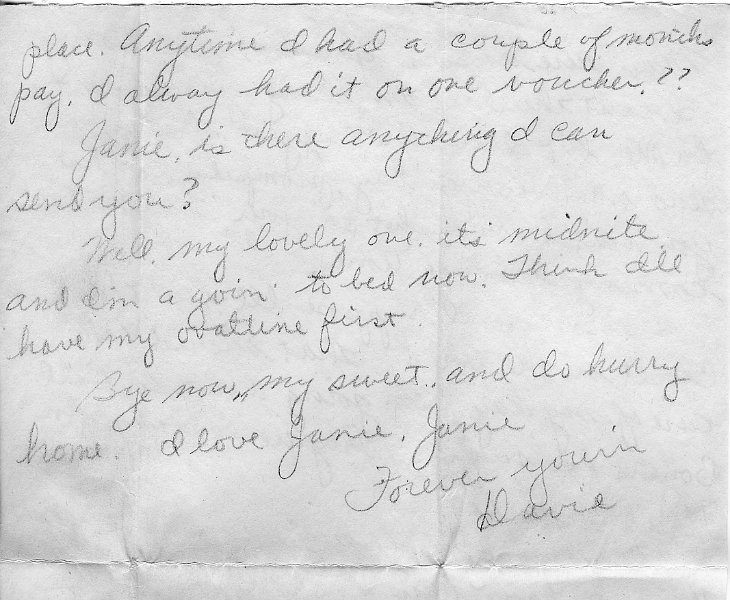 place. Anytime I had a couple of months
pay, I alway had it on one voucher.??
Janie, is there anything I can
send you?
Well, my lovely one, it's midnite
and I'm a goin' to bed now. Think I'll
have my ovaltine first.
Bye now, my sweet, and do hurry
home. I love Janie, Janie
Forever yours'n
Davie